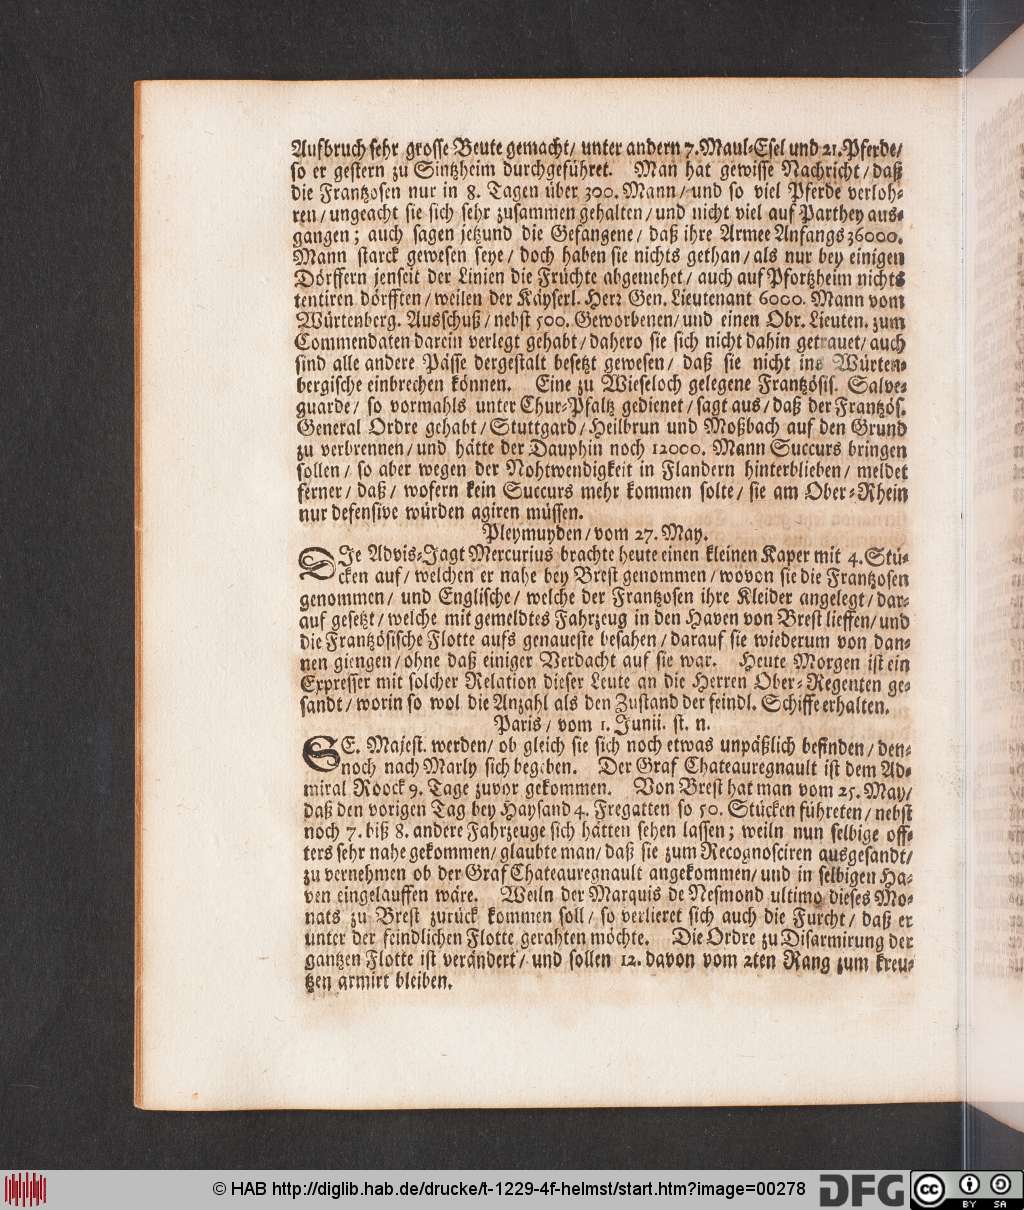 Aufbruch sehr grosse Beute gemacht/ unter andern 7. Maul-Esel und 21. Pferde/
so er gestern zu Sintzheim durchgeführet. Man hat gewisse Nachricht/ daß
die Frantzosen nur in 8. Tagen über 300. Mann/ und so viel Pferde verloh-
ren/ ungeacht sie sich sehr zusammen gehalten/ und nicht viel auf Parthey aus-
gangen; auch sagen jetzund die Gefangene/ daß ihre Armee Anfangs 36000.
Mann starck gewesen seye/ doch haben sie nichts gethan/ als nur bey einigen
Dörffern jenseit der Linien die Früchte abgemehet/ auch auf Pfortzheim nichts
tentiren dörfften/ weilen der Käyserl. Herr Gen. Lieutenant 6000. Mann vom
Würtenberg. Ausschuß/ nebst 500. Geworbenen/ und einen Obr. Lieuten. zum
Commendaten darein verlegt gehabt/ dahero sie sich nicht dahin getrauet/ auch
sind alle andere Pässe dergestalt besetzt gewesen/ daß sie nicht ins Würten-
bergische einbrechen können. Eine zu Wieseloch gelegene Frantzösis. Salve-
guarde/ so vormahls unter Chur-Pfaltz gedienet/ sagt aus/ daß der Frantzös.
General Ordre gehabt/ Stuttgard/ Heilbrun und Moßbach auf den Grund
zu verbrennen/ und hätte der Dauphin noch 12000. Mann Succurs bringen
sollen/ so aber wegen der Nohtwendigkeit in Flandern hinterblieben/ meldet
ferner/ daß/ wofern kein Succurs mehr kommen solte/ sie am Ober-Rhein
nur defensive würden agiren müssen.
Pleymuyden/ vom 27. May.
DIe Advis-Jagt Mercurius brachte heute einen kleinen Kaper mit 4. Stü-
cken auf/ welchen er nahe bey Brest genommen/ wovon sie die Frantzosen
genommen/ und Englische/ welche der Frantzosen ihre Kleider angelegt/ dar-
auf gesetzt/ welche mit gemeldtes Fahrzeug in den Haven von Brest lieffen/ und
die Frantzösische Flotte aufs genaueste besahen/ darauf sie wiederum von dan-
nen giengen/ ohne daß einiger Verdacht auf sie war. Heute Morgen ist ein
Expresser mit solcher Relation dieser Leute an die Herren Ober-Regenten ge-
sandt/ worin so wol die Anzahl als den Zustand der feindl. Schiffe erhalten.
Paris/ vom 1. Junii. st. n.
SE. Majest. werden/ ob gleich sie sich noch etwas unpäßlich befinden/ den-
noch nach Marly sich begeben. Der Graf Chateauregnault ist dem Ad-
miral Roock 9. Tage zuvor gekommen. Von Brest hat man vom 25. May/
daß den vorigen Tag bey Haysand 4. Fregatten so 50. Stücken führeten/ nebst
noch 7. biß 8. andere Fahrzeuge sich hätten sehen lassen; weiln nun selbige öff-
ters sehr nahe gekommen/ glaubte man/ daß sie zum Recognosciren ausgesandt/
zu vernehmen ob der Graf Chateauregnault angekommen/ und in selbigen Ha-
ven eingelauffen wäre. Weiln der Marquis de Nesmond ultimo dieses Mo-
nats zu Brest zurück kommen soll/ so verlieret sich auch die Furcht/ daß er
unter der feindlichen Flotte gerahten möchte. Die Ordre zu Disarmirung der
gantzen Flotte ist verändert/ und sollen 12. davon vom 2ten Rang zum kreu-
tzen armirt bleiben.
© HAB http://diglib.hab.de/drucke/t-1229-4f-helmst/start.htm?image=00278
DFG
cc BY SA